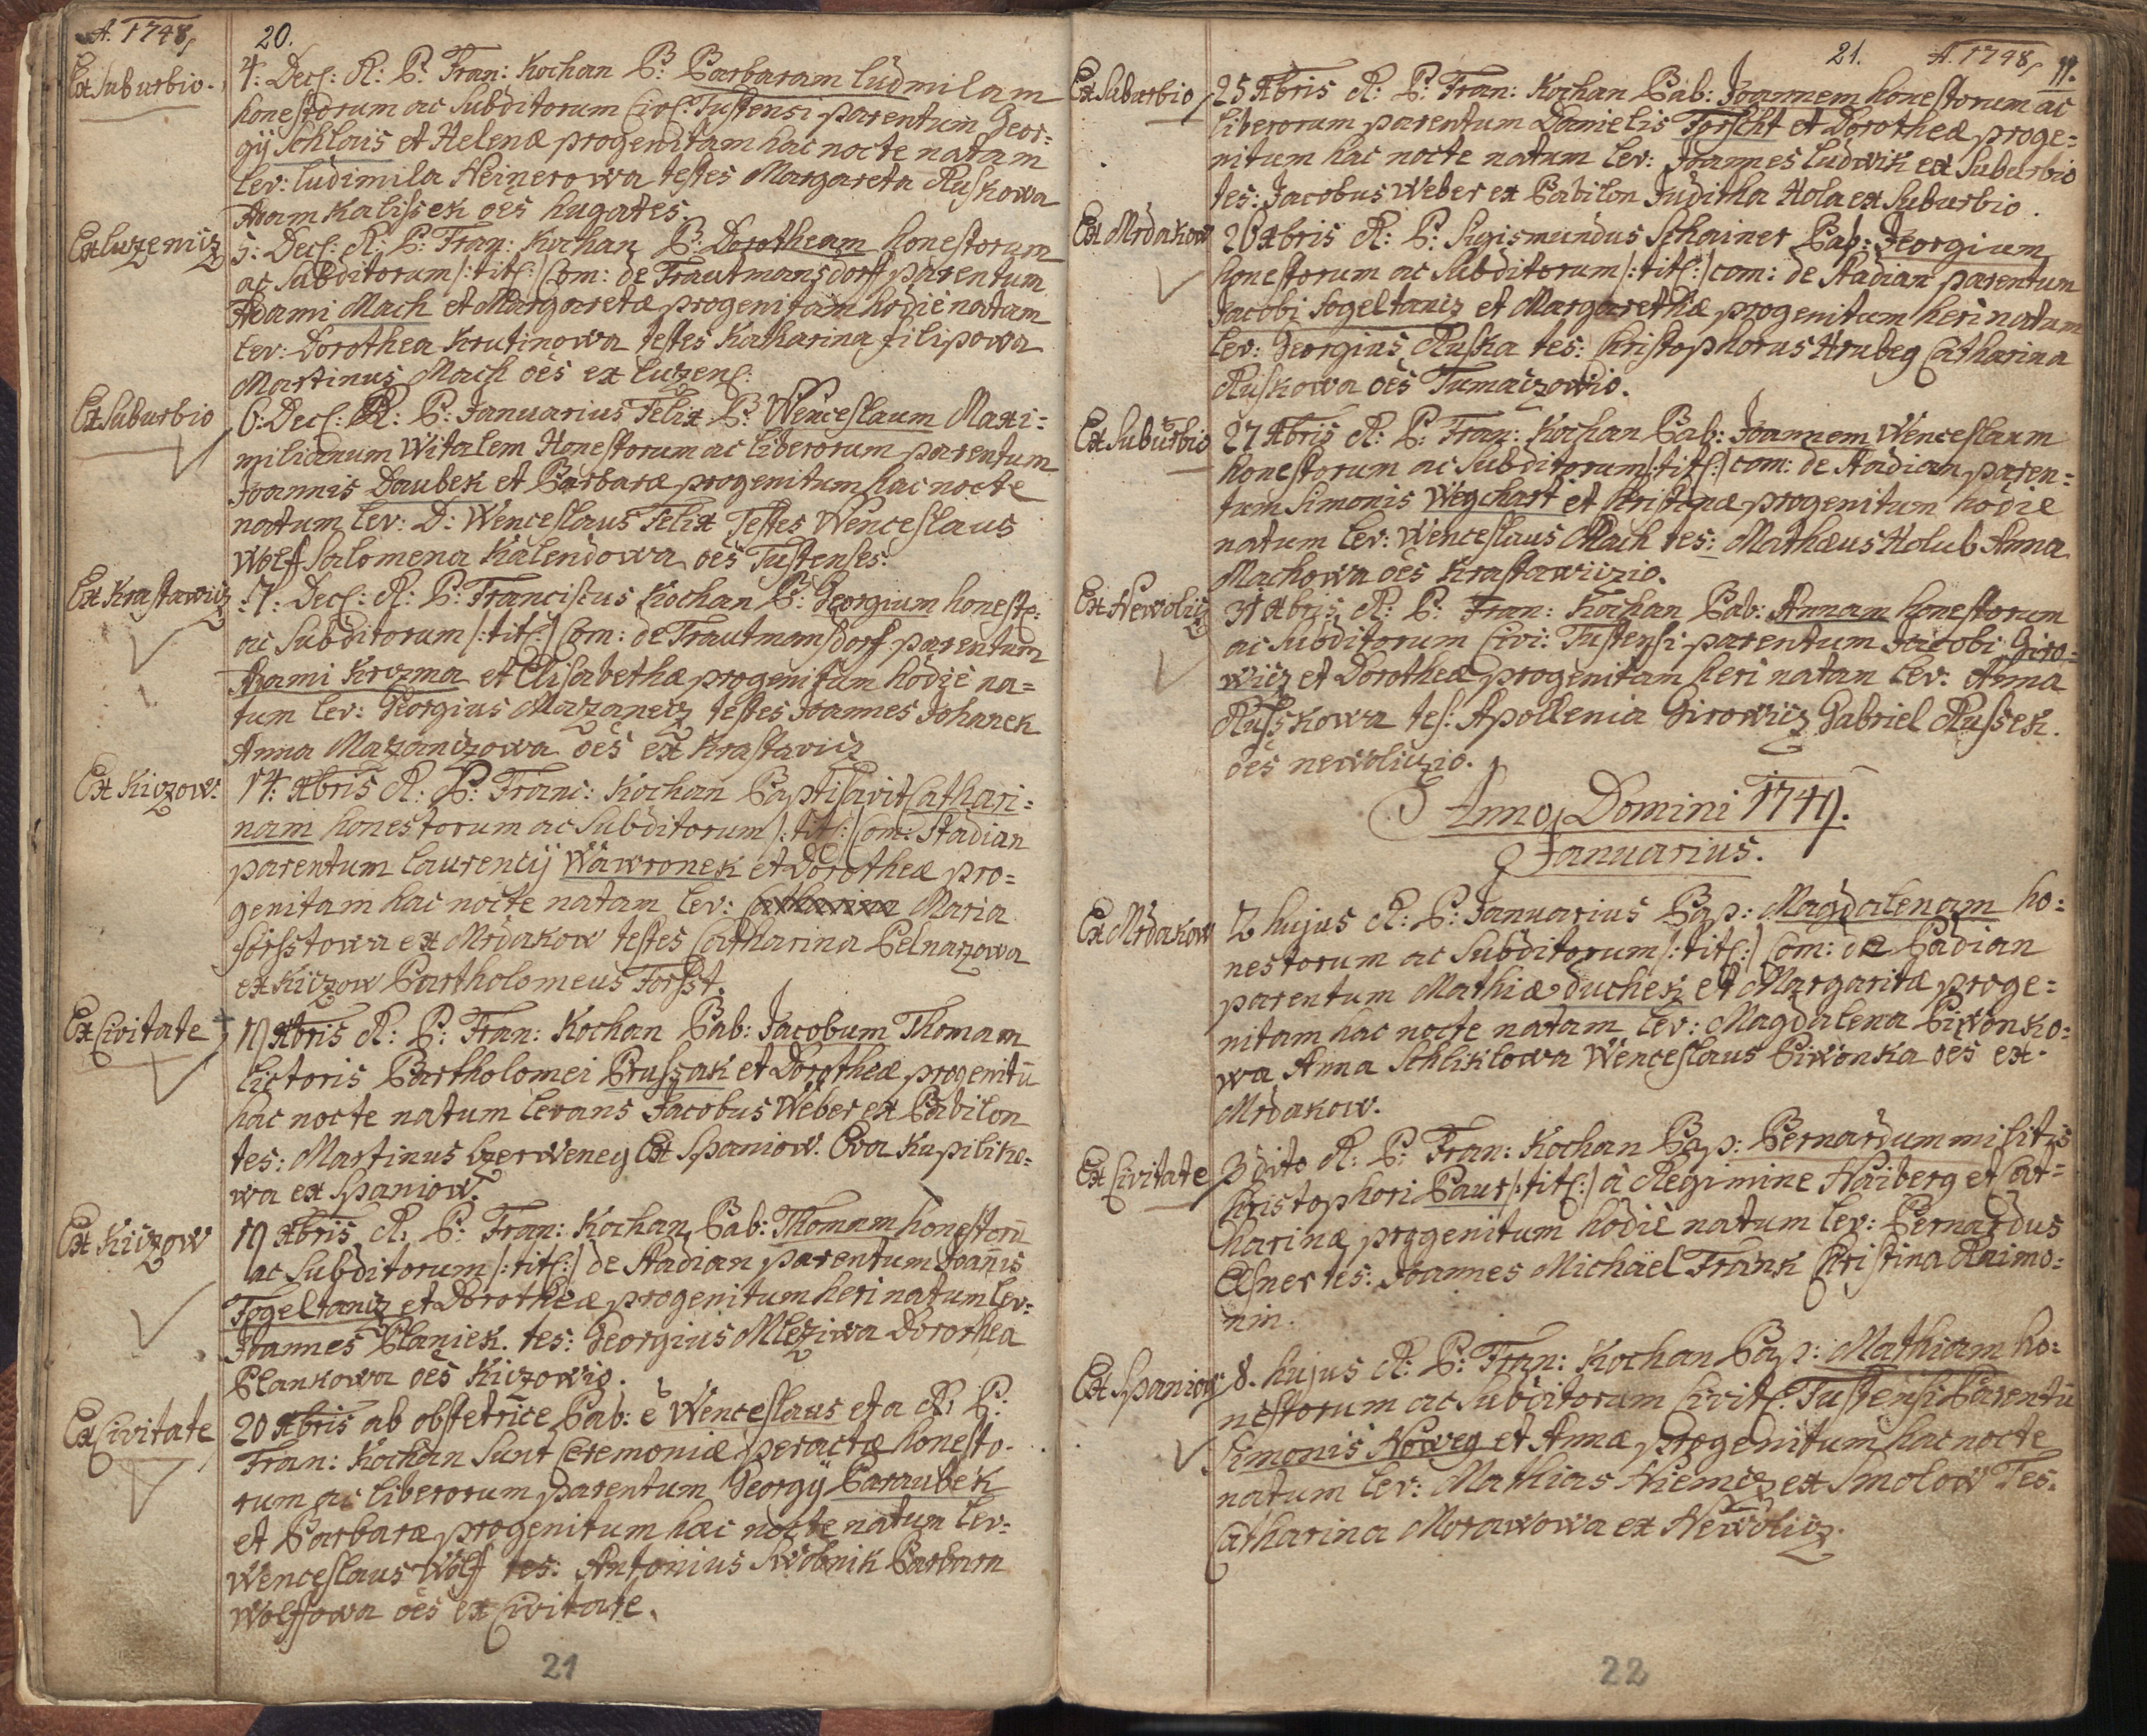 A. 1748,
20.
Ex Suburbio.
4. Dec: R: P: Fran: Kochan B: Barbaram Ludmilam
honestorum ac Subditorum Civ: Tustensi parentum Geor:
gij Schlais et Helenæ progenitam hac nocte natam
Lev: Ludimila Heinerowa testes Margareta Ruskowa
Adam Kalissek oēs hugates.
Ex Luzenicz
5: Dec: R: P: Fran: Kochan B: Dorotheam honestorum
ac Subditorum /:tit:/ Com: de Trautmansdorf parentum
Adami Mach et Margaretæ progenitam hodie natam
Lev: Dorothea Krutinowa testes Katharina filipowa
Martinus Mach oēs ex Luzen:
Ex Suburbio
6: Dec: R: P: Januarius Felix B: Wenceslaum Maxi:
milianum Witalem Honestorum ac Liberorum parentum
Joannis Daubek et Barbaræ progenitum hac nocte
natum Lev: D: Wenceslaus Felix Testes Wenceslaus
Wolf Salomena Kalendowa oēs Tustenses.
Ex Krastawicz
:7: Dec: R: P: Franciscus Kochan B: Georgium honesto:
ac Subditorum /:tit:/ Com: de Trautmansdorf parentum
Adami Krozma et Elisabethæ progenitum hodie na=
tum Lev: Georgius Mazanecz testes Joannes Johanek
Anna Mazanczowa oēs ex Krastavicz
Ex Kiczow:
14: Xbris R: P: Franc: Kochan Baptisavit Cathari:
nam honestorum ac Subditorum /:tit:/ Com: Stadian
parentum Laurencij Wawronek et Dorotheæ pro=
genitam hac nocte natam Lev: Catharina Maria
Forsstowa ex Mrdakow testes Catharina Pelnarzowa
ex Kiczow Bartholomeus Forsst.
Ex Civitate
19 Xbris R: P: Fran: Kochan Bab: Jacobum Thomam
Lictoris Bartholomei Prussak et Dorotheæ progenitū
hac nocte natum Levans Jacobus Weber ex Babilon
tes: Martinus Czerweneg Ex Spaniow. Eva Kupiliko:
wa ex Spaniow.
Ex Kiczow
19 Xbris R: P: Fran: Kochan Bab: Thomam honestorū
ac Subditorum /:tit:/ de Stadian parentum Joañis
Fogeltancz et Dorotheæ progenitum heri natum Lev:
Joannes Blaniek. tes: Georgius Mleziwa Dorothea
Blankowa oēs Kiczowio.
Ex Civitate
20 Xbris ab obstetrice Bab: ē Wenceslaus et a R: P:
Fran: Kochan Sunt Ceremoniæ peractæ honesto.
rum ac Liberorum parentum Georgij Baraubek
et Barbaræ progenitum hac nocte natum Lev:
Wenceslaus Wolf tes: Antonius Swobnik Barbara
Wolfowa oēs ex Civitate.
21
21. A. 1748, 11.
Ex Suburbio
25 Xbris R: P: Fran: Kochan Bab: Joannem honestorum ac
Liberorum parentum Danielis Forscht et Dorotheæ proge:
nitum hac nocte natum Lev: Joannes Ludwik ex Suburbio
tes: Jacobus Weber ex Babilon Juditha Hola ex Suburbio.
Ex Mrdakow
26 Xbris R: P: Sigismundus Schainer Bap: Georgium
honestorum ac Subditorum /:tit:/ com: de Stadian parentum
Jacobi Fogeltancz et Margarethæ progenitum heri natum
Lev: Georgius Ruska tes: Christophorus Hrubeg Catharina
Ruskowa oēs Tumaczowio.
Ex Suburbio
27 Xbris R: P: Fran: Kochan Bab: Joannem Wenceslaum
honestorum ac Subditorum /:tit:/ com: de Stadian paren:
tum Simonis Wegchart et Kristinæ progenitum hodie
natum Lev: Wenceslaus Mach tes: Mathæus Holub Anna
Machowa oēs Krastawiczio.
Ex Newolicz
31 Xbris R: P: Fran: Kochan Bab: Annam honestorum
ac Subditorum Civi: Tustensi parentum Jacobi Giro=
wicz et Dorotheæ progenitam heri natam Lev: Anna
Russkowa tes: Apollenia Girowicz Gabriel Russek.
oēs newoliczio.
Anno Domini 1749.
Januarius.
Ex Mrdakow
2 hujus R: P: Januarius Bap: Magdalenam ho:
nestorum ac Subditorum /:tit:/ Com: de Stadian
parentum Mathiæ duchek et Margaritæ proge:
nitam hac nocte natam Lev: Magdalena Piwonko:
wa Anna Schliklowa Wenceslaus Piwonka oēs ex.
Mrdakow.
Ex Civitate
3 dito R: P: Fran: Kochan Bap: Bernardum militis
Christophori Baur /:tit:/ à Regimine Haiberg et Cat=
harinæ progenitum hodie natum Lev: Bernardus
Elsner tes: Joannes Michäel Frank Christina Raimo:
nin.
Ex Spaniow
8. hujus R: P: Fran: Kochan Bap: Mathiam ho:
nestorum ac Subditorum Civit: Tustensi Parentū
Simonis Noweg et Annæ progenitum hac nocte
natum Lev: Mathias Niemecz ex Smolow Tes.
Catharina Morawowa ex Newolicz.
22